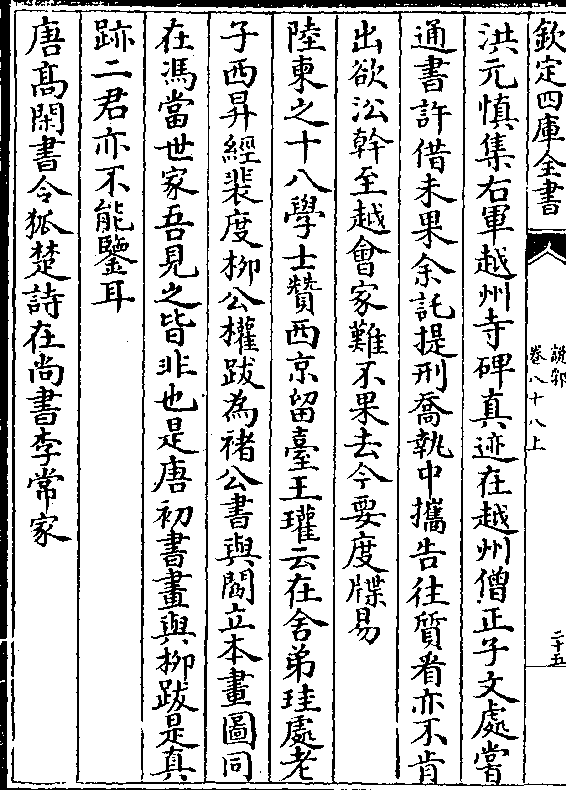 欽定四庫全書
說郛
卷八十八上
二十五
洪元慎集右軍越州寺碑真迹在越州僧正子文處嘗
通書許借未果余託提刑喬執中攜告往質看亦不肯
出欲㳂幹至越會家難不果去今要度牒易
陸柬之十八學士贊西京留臺王瓘云在舍弟珪處老
子西昇經裴度柳公權跋為禇公書與閻立本畫圖同
在馮當世家吾見之皆非也是唐初書畫與柳跋是真
跡二君亦不能鑒耳
唐髙閑書令狐楚詩在尚書李常家